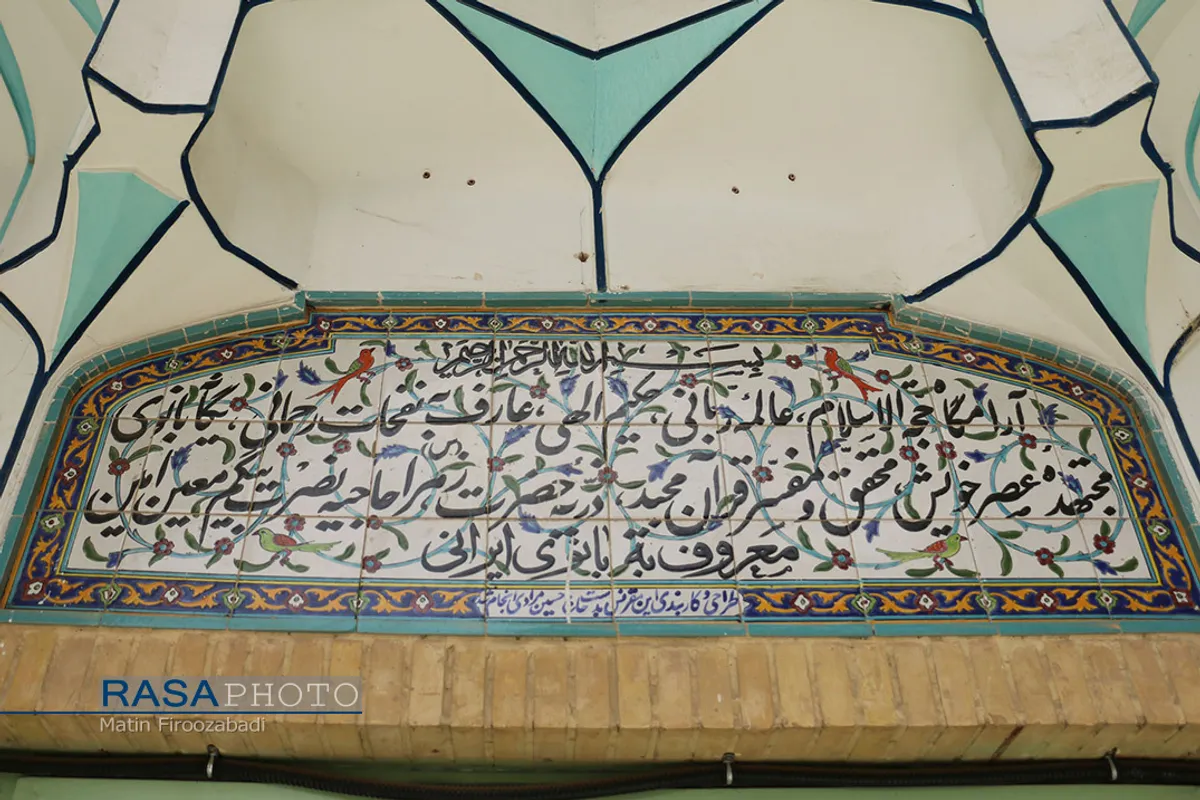 بسم الله الرحمن الرحیم
آرامگاه حجة الاسلام، عالمه ربانی، حکیم الهی، عارف به نفحات رحمانی، یگانه بانوی
مجتهده عصر خویش، محقق و مفسر قرآن مجید، ذریه حضرت زهرا حاجیه نصرت بیگم معین امین
معروف به بانوی ایرانی
طراحی و کاربندی این مقرنس بدست حسین مرادی انجام
RASAPHOTO
Matin Firoozabadi